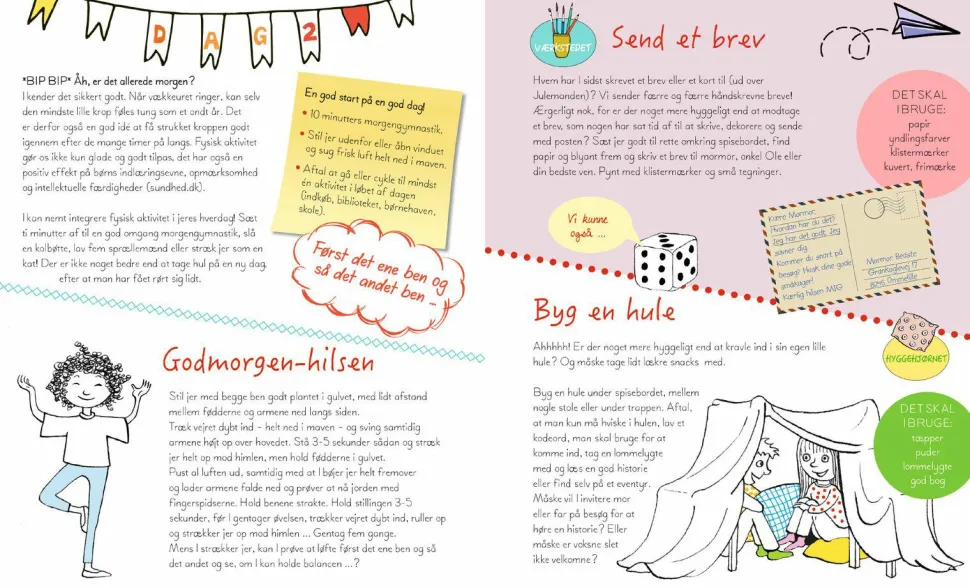 DAG 2
*BIP BIP* Åh, er det allerede morgen?
I kender det sikkert godt. Når vækkeuret ringer, kan selv
den mindste lille krop føles tung som et ondt år. Det
er derfor også en god idé at få strukket kroppen godt
igennem efter de mange timer på langs. Fysisk aktivitet
gør os ikke kun glade og godt tilpas, det har også en
positiv effekt på børns indlæringsevne, opmærksomhed
og intellektuelle færdigheder (sundhed.dk).
I kan nemt integrere fysisk aktivitet i jeres hverdag! Sæt
ti minutter af til en god omgang morgengymnastik, slå
en kolbøtte, lav fem sprællemænd eller stræk jer som en
kat! Der er ikke noget bedre end at tage hul på en ny dag,
efter at man har fået rørt sig lidt.
En god start på en god dag!
• 10 minutters morgengymnastik.
• Stil jer udenfor eller åbn vinduet
og sug frisk luft helt ned i maven.
• Aftal at gå eller cykle til mindst
én aktivitet i løbet af dagen
(indkøb, biblioteket, børnehaven,
skole).
Først det ene ben og
så det andet ben ...
Godmorgen-hilsen
Stil jer med begge ben godt plantet i gulvet, med lidt afstand
mellem fødderne og armene ned langs siden.
Træk vejret dybt ind - helt ned i maven - og sving samtidig
armene højt op over hovedet. Stå 3-5 sekunder sådan og stræk
jer helt op mod himlen, men hold fødderne i gulvet.
Pust al luften ud, samtidig med at I bøjer jer helt fremover
og lader armene falde ned og prøver at nå jorden med
fingerspidserne. Hold benene strakte. Hold stillingen 3-5
sekunder, før I gentager øvelsen, trækker vejret dybt ind, ruller op
og strækker jer op mod himlen ... Gentag fem gange.
Mens I strækker jer, kan I prøve at løfte først det ene ben og så
det andet og se, om I kan holde balancen ...?
VÆRKSTEDET
Send et brev
Hvem har I sidst skrevet et brev eller et kort til (ud over
Julemanden)? Vi sender færre og færre håndskrevne breve!
Ærgerligt nok, for er der noget mere hyggeligt end at modtage
et brev, som nogen har sat tid af til at skrive, dekorere og sende
med posten? Sæt jer godt til rette omkring spisebordet, find
papir og blyant frem og skriv et brev til mormor, onkel Ole eller
din bedste ven. Pynt med klistermærker og små tegninger.
DET SKAL
I BRUGE:
papir
yndlingsfarver
klistermærker
kuvert, frimærke
Vi kunne
også ...
Kære Mormor
Hvordan har du det?
Jeg har det godt. Jeg
savner dig.
Kommer du snart på
besøg? Husk dine gode
småkager!
Kærlig hilsen MIG
Mormor Bedste
Grankoglevej 17
Byg en hule
HYGGEHJØRNET
Ahhhhh! Er der noget mere hyggeligt end at kravle ind i sin egen lille
hule? Og måske tage lidt lækre snacks med.
Byg en hule under spisebordet, mellem
nogle stole eller under trappen. Aftal,
at man kun må hviske i hulen, lav et
kodeord, man skal bruge for at
komme ind, tag en lommelygte
med og læs en god historie
eller find selv på et eventyr.
Måske vil I invitere mor
eller far på besøg for at
høre en historie? Eller
måske er voksne slet
ikke velkomne?
DET SKAL
I BRUGE:
tæpper
puder
lommelygte
god bog